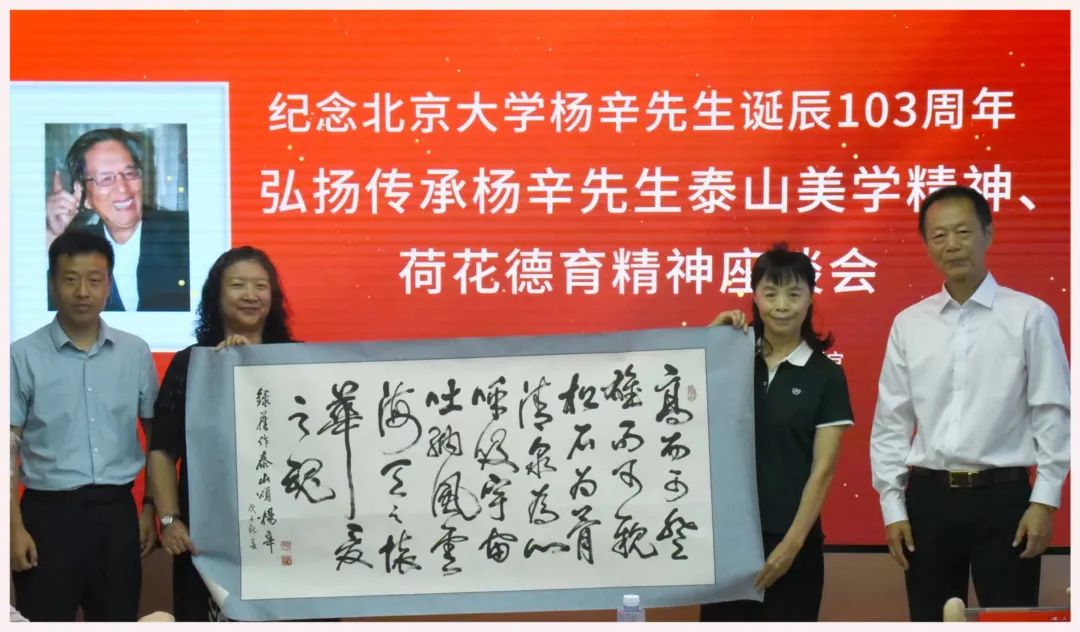 纪念北京大学杨辛先生诞辰103周年
弘扬传承杨辛先生泰山美学精神、
荷花德育精神座谈会
高而可登
雄而可親
松石为骨
清泉为心
呼吸宇宙
吐納風雲
海天之懷
華夏
之魂
録舊作泰山頌 楊辛